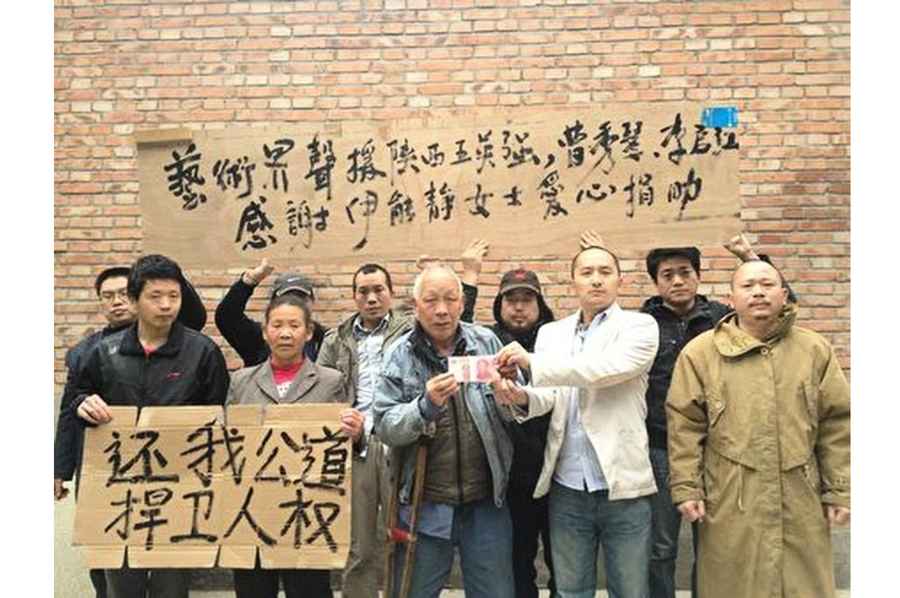 藝術界聲援陕西王英强,曹秀琴.李启红
感謝伊能静女士爱心捐助
还我公道
捍卫人权